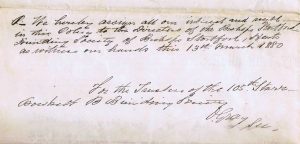 We hereby assign all our interest and right
in this Policy to the Directors of the Bishops Stortford
Building Society of Bishops Stortford, Herts
as witness our hands this 13th March 1880
For the Trustees of the 105th Starr
Bowkett B Building Society
Gray
Sec.